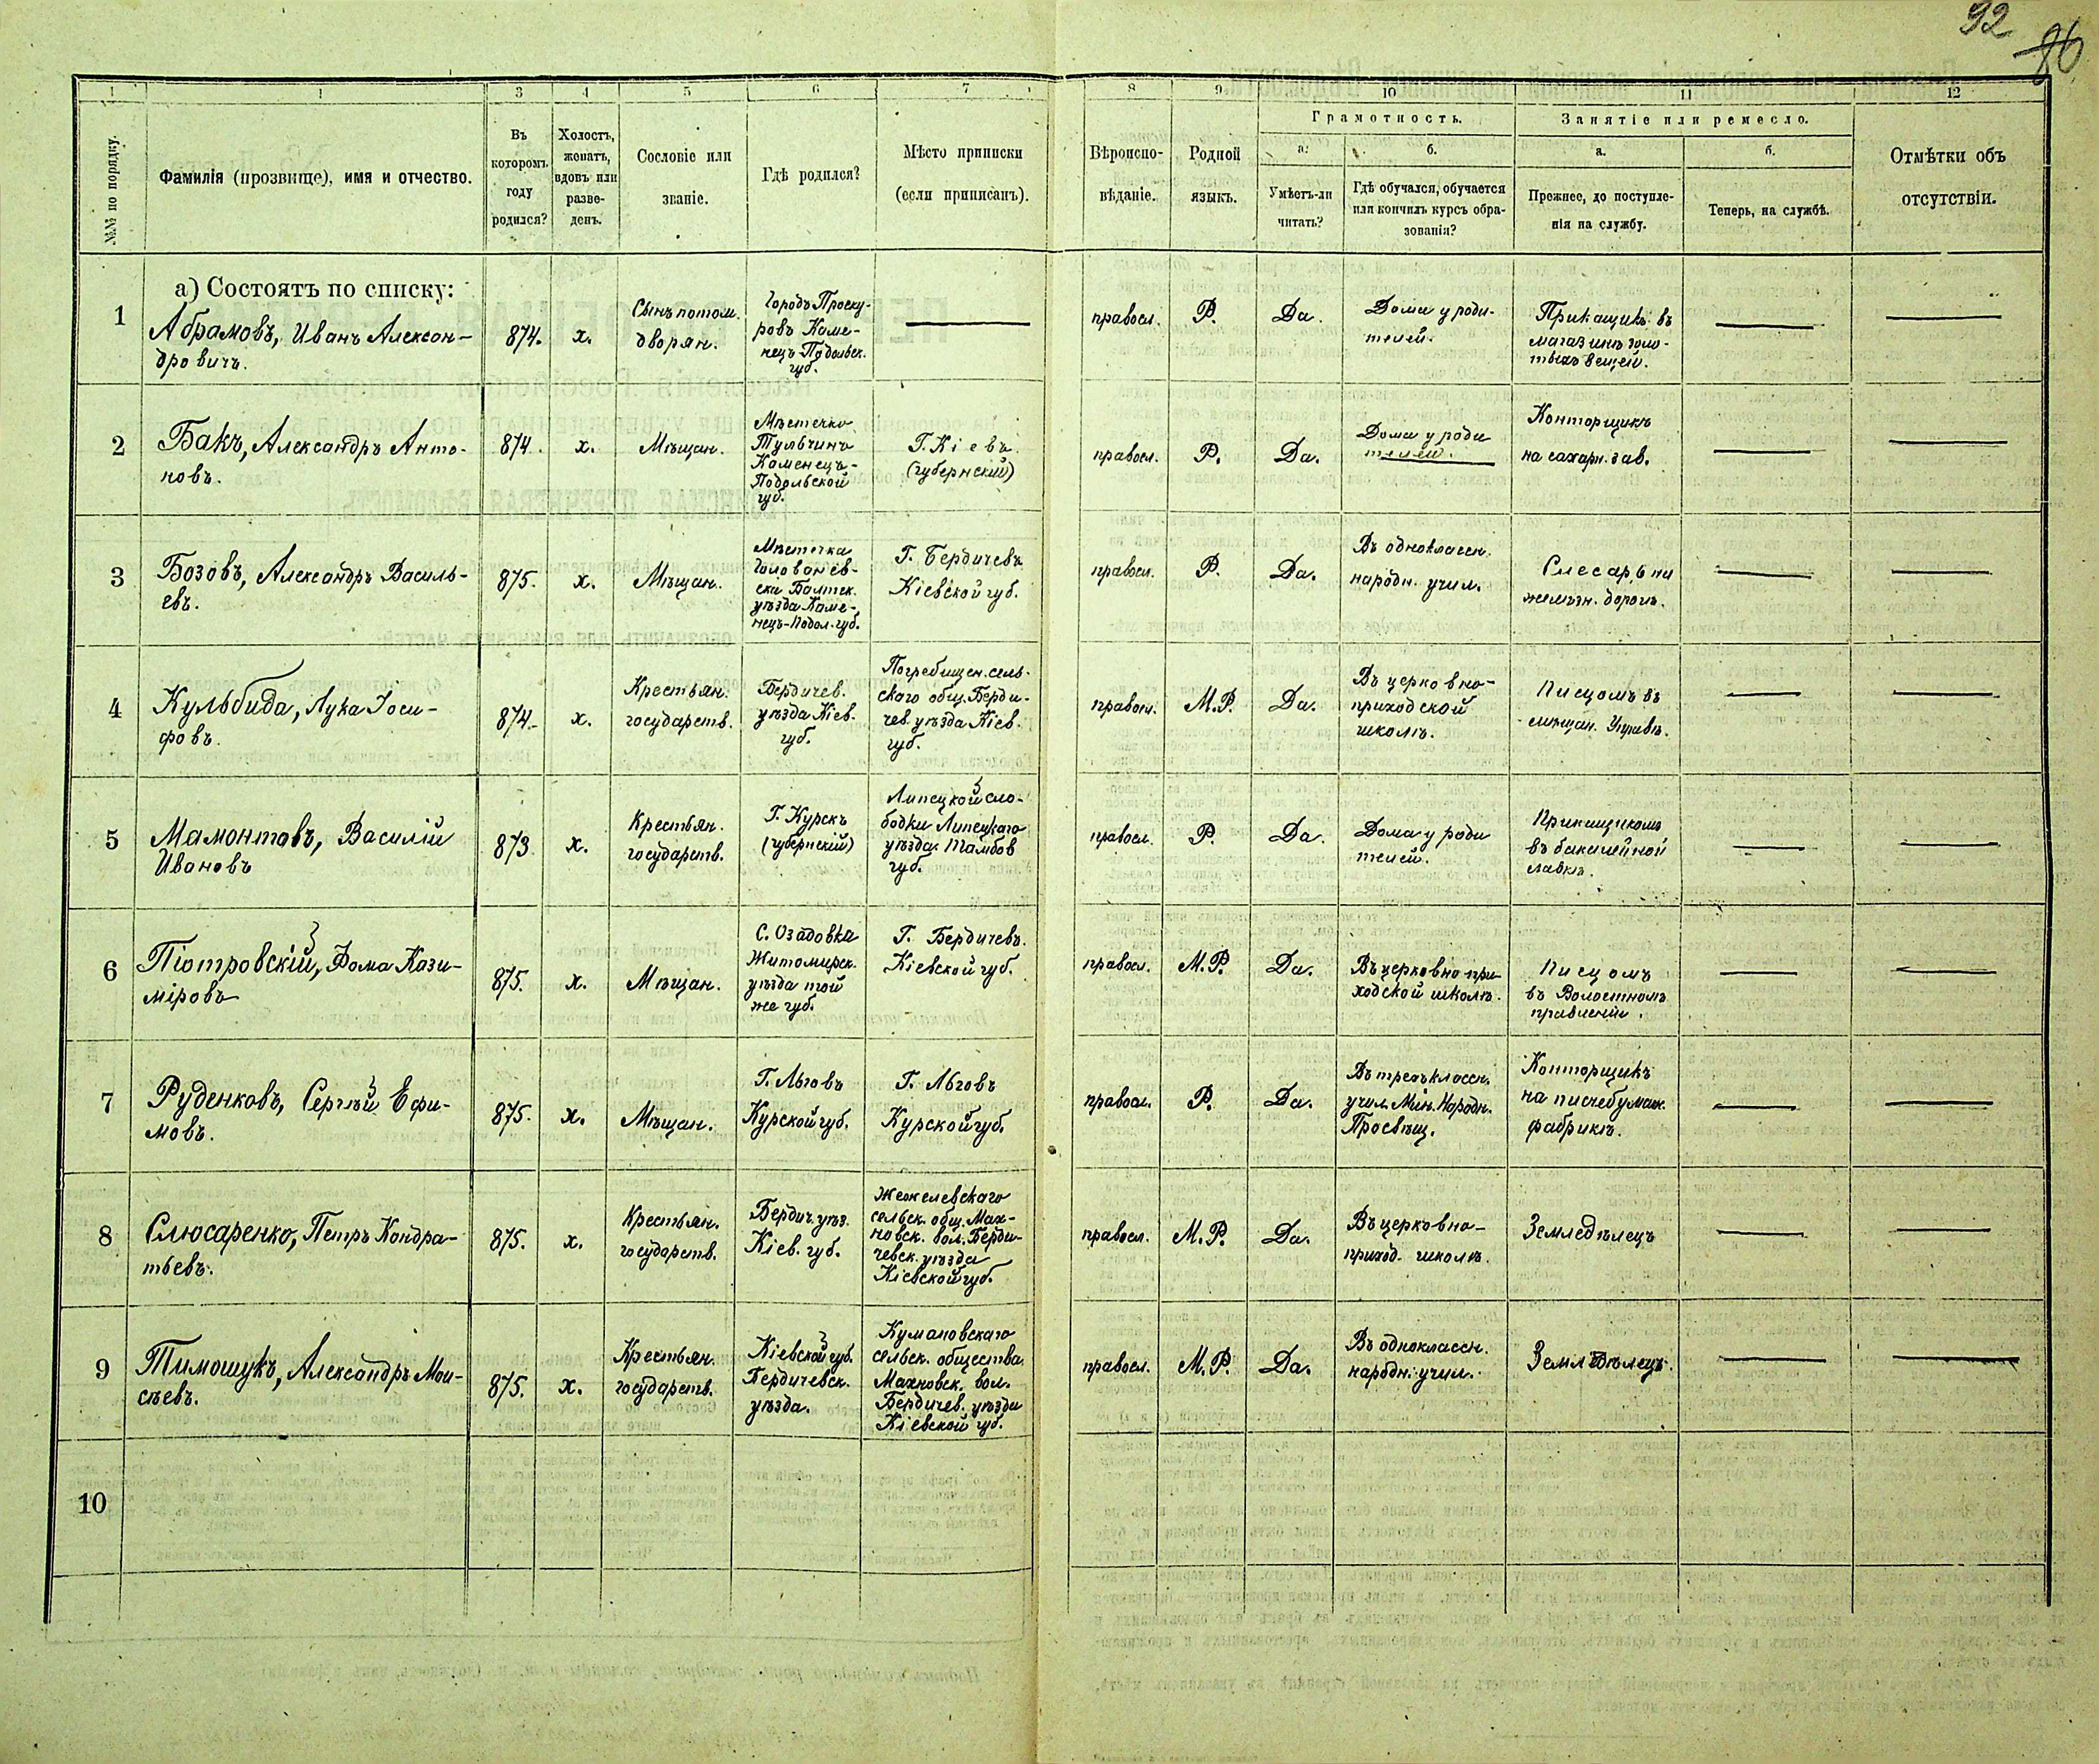 92
26
1
1
3
4
5
6
7
8
9.
10
11
12
№№ по порядку.
Фамилія (прозвище), имя и отчество.
Въ
которомъ
году
родился?
Холостъ,
женатъ,
вдовъ или
разве-
денъ.
Сословіе или
званіе.
Гдѣ родился?
Мѣсто приписки
(если приписанъ).
Вѣроиспо-
вѣданіе.
Родной
языкъ.
Грамотность.
а.
Умѣетъ-ли
читать?
б.
Гдѣ обучался, обучается
или кончилъ курсъ обра-
зованія?
Занятіе или ремесло.
а.
Прежнее, до поступле-
нія на службу.
б.
Теперь, на службѣ.
Отмѣтки объ
отсутствіи.
а) Состоятъ по списку:
1
Абрамовъ, Иванъ Алексан-
дровичъ.
874.
х.
Сынъ потом.
дворян.
Городъ Проску-
ровъ Каме-
нецъ-Подольск.
губ.
—
правосл.
Р.
Да.
Дома у роди-
телей.
Прикащикъ въ
магазинѣ золо-
тыхъ вещей.
—
—
2
Бакъ, Александръ Анто-
новъ.
874.
х.
Мѣщан.
Мѣстечко
Тульчинъ
Каменецъ-
Подольской
губ.
Г. Кіевъ.
(губернскій)
правосл.
Р.
Да.
Дома у роди
телей.
Конторщикъ
на сахарн. зав.
—
—
3
Бозовъ, Александръ Василь-
евъ.
875.
х.
Мѣщан.
Мѣстечка
Голованев-
ска Балтск.
уѣзда Каме-
нецъ-Подол. губ.
Г. Бердичевъ
Кіевской губ.
правосл.
Р.
Да.
Въ одноклассн.
народн. учил.
Слесарь на
желѣзн. дорогѣ.
—
—
4
Кульбида, Лука Іоси-
фовъ.
874.
х.
Крестьян.
государств.
Бердичев.
уѣзда Кіев.
губ.
Погребищен. сель-
скаго общ. Берди-
чев. уѣзда Кіев.
губ.
правосл.
М.Р.
Да.
Въ церковно-
приходской
школѣ.
Писцомъ въ
мѣщан. Управѣ.
—
—
5
Мамонтовъ, Василій
Ивановъ
873
х.
Крестьян.
государств.
Г. Курскъ
(губернскій)
Липецкой сло-
бодки Липецкаго
уѣзда Тамбов
губ.
правосл.
Р.
Да.
Дома у роди
телей.
Прикащикомъ
въ бакалейной
лавкѣ.
—
—
6
Піотровскій, Фома Кази-
міровъ
875.
х.
Мѣщан.
С. Озадовка
Житомирск.
уѣзда той
же губ.
Г. Бердичевъ.
Кіевской губ.
правосл.
М.Р.
Да.
Въ церковно при
ходской школѣ.
Писцомъ
въ Волостномъ
правленіи.
—
—
7
Руденковъ, Сергѣй Ефи-
мовъ.
875.
х.
Мѣщан.
Г. Льговъ
Курской губ.
Г. Льговъ
Курской губ.
правосл.
Р.
Да.
Въ трехъклассн.
учил. Мин. Народн.
Просвѣщ.
Конторщикъ
на писчебумаж.
фабрикѣ.
—
—
8
Слюсаренко, Петръ Кондра-
тьевъ.
875.
х.
Крестьян.
государств.
Бердич. уѣз.
Кіев. губ.
Жежелевскаго
сельск. общ. Мах-
новск. вол. Берди-
чевск. уѣзда
Кіевской губ.
правосл.
М.Р.
Да.
Въ церковно-
приход. школѣ.
Земледѣлецъ
—
—
9
Тимошукъ, Александръ Мои-
сѣевъ.
875.
х.
Крестьян.
государств.
Кіевской губ.
Бердичевск.
уѣзда.
Кумановскаго
сельск. общества
Махновск. вол.
Бердичев. уѣзда
Кіевской губ.
правосл.
М.Р.
Да.
Въ одноклассн.
народн. учил.
Земледѣлецъ.
—
—
10